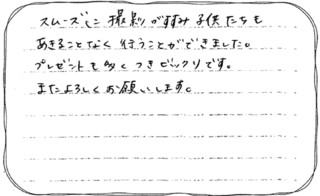 スムーズに撮影がすすみ子供たちも
あきることなく行うことができました。
プレゼントも多くつきビックリです。
またよろしくお願いします。